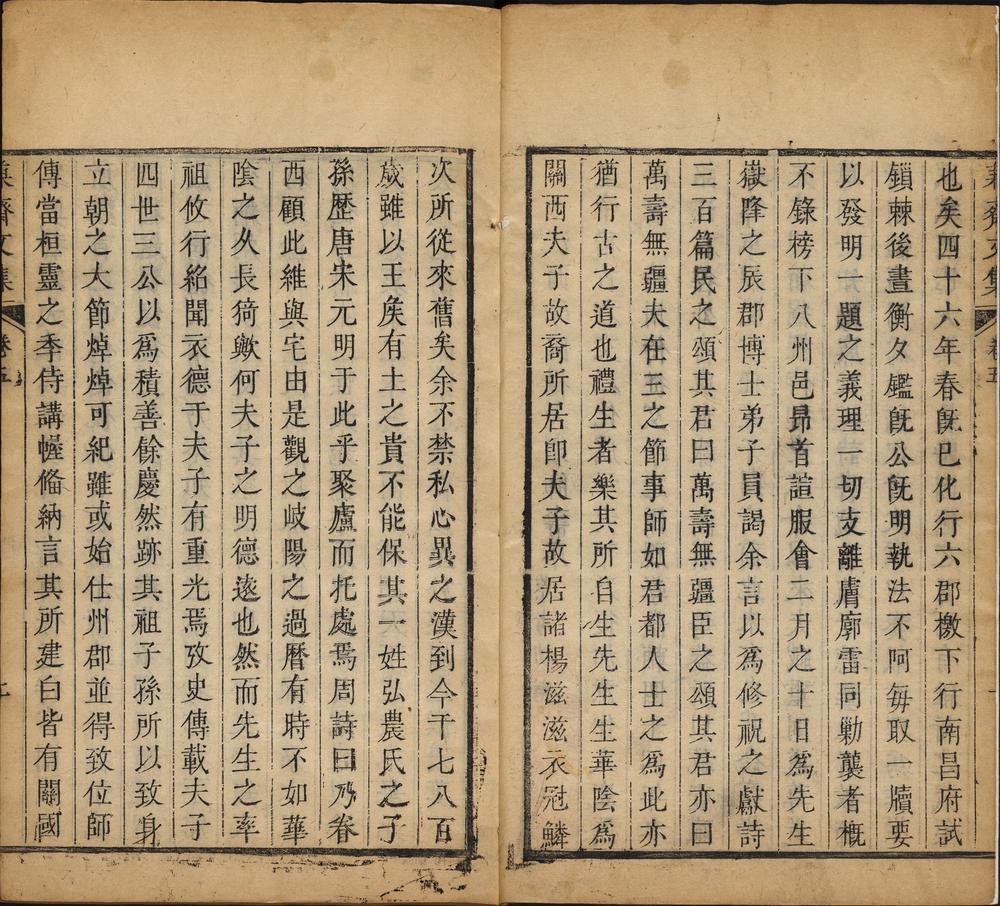 齋文集 卷五
也矣四十六年春旣巳化行六郡檄下行南昌府試
鎖棘後晝衡夕鑑旣公旣明執法不阿每取一牘要
以發明一題之義理一切支離膚廓雷同勦襲者槪
不錄榜下八州邑昻首諠服會二月之十日爲先生
嶽降之辰郡博士弟子員謁余言以爲修祝之獻詩
三百篇民之頌其君曰萬壽無疆臣之頌其君亦曰
萬壽無疆夫在三之節事師如君都人士之爲此亦
猶行古之道也禮生者樂其所自生先生生華陰爲
關西夫子故裔所居卽夫子故居諸楊滋滋衣冠鱗
次所從來舊矣余不禁私心異之漢到今千七八百
歲雖以王矦有土之貴不能保其一姓弘農氏之子
孫歷唐宋元明于此乎聚廬而托處焉周詩曰乃眷
西顧此維與宅由是觀之岐陽之過曆有時不如華
陰之久長猗歟何夫子之明德遠也然而先生之率
祖攸行紹聞衣德于夫子有重光焉攷史傳載夫子
四世三公以爲積善餘慶然跡其祖子孫所以致身
立朝之大節焯焯可紀雖或始仕州郡並得致位師
傅當桓靈之季侍講幄俻納言其所建白皆有關國
齋文集 卷五